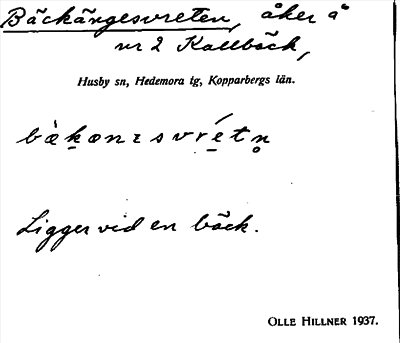 Bäckängesvreten, åker å
nr 2 Kallbäck,
Husby sn, Hedemora tg, Kopparbergs län.
Ligger vid en bäck.
OLLE HILLNER 1937.